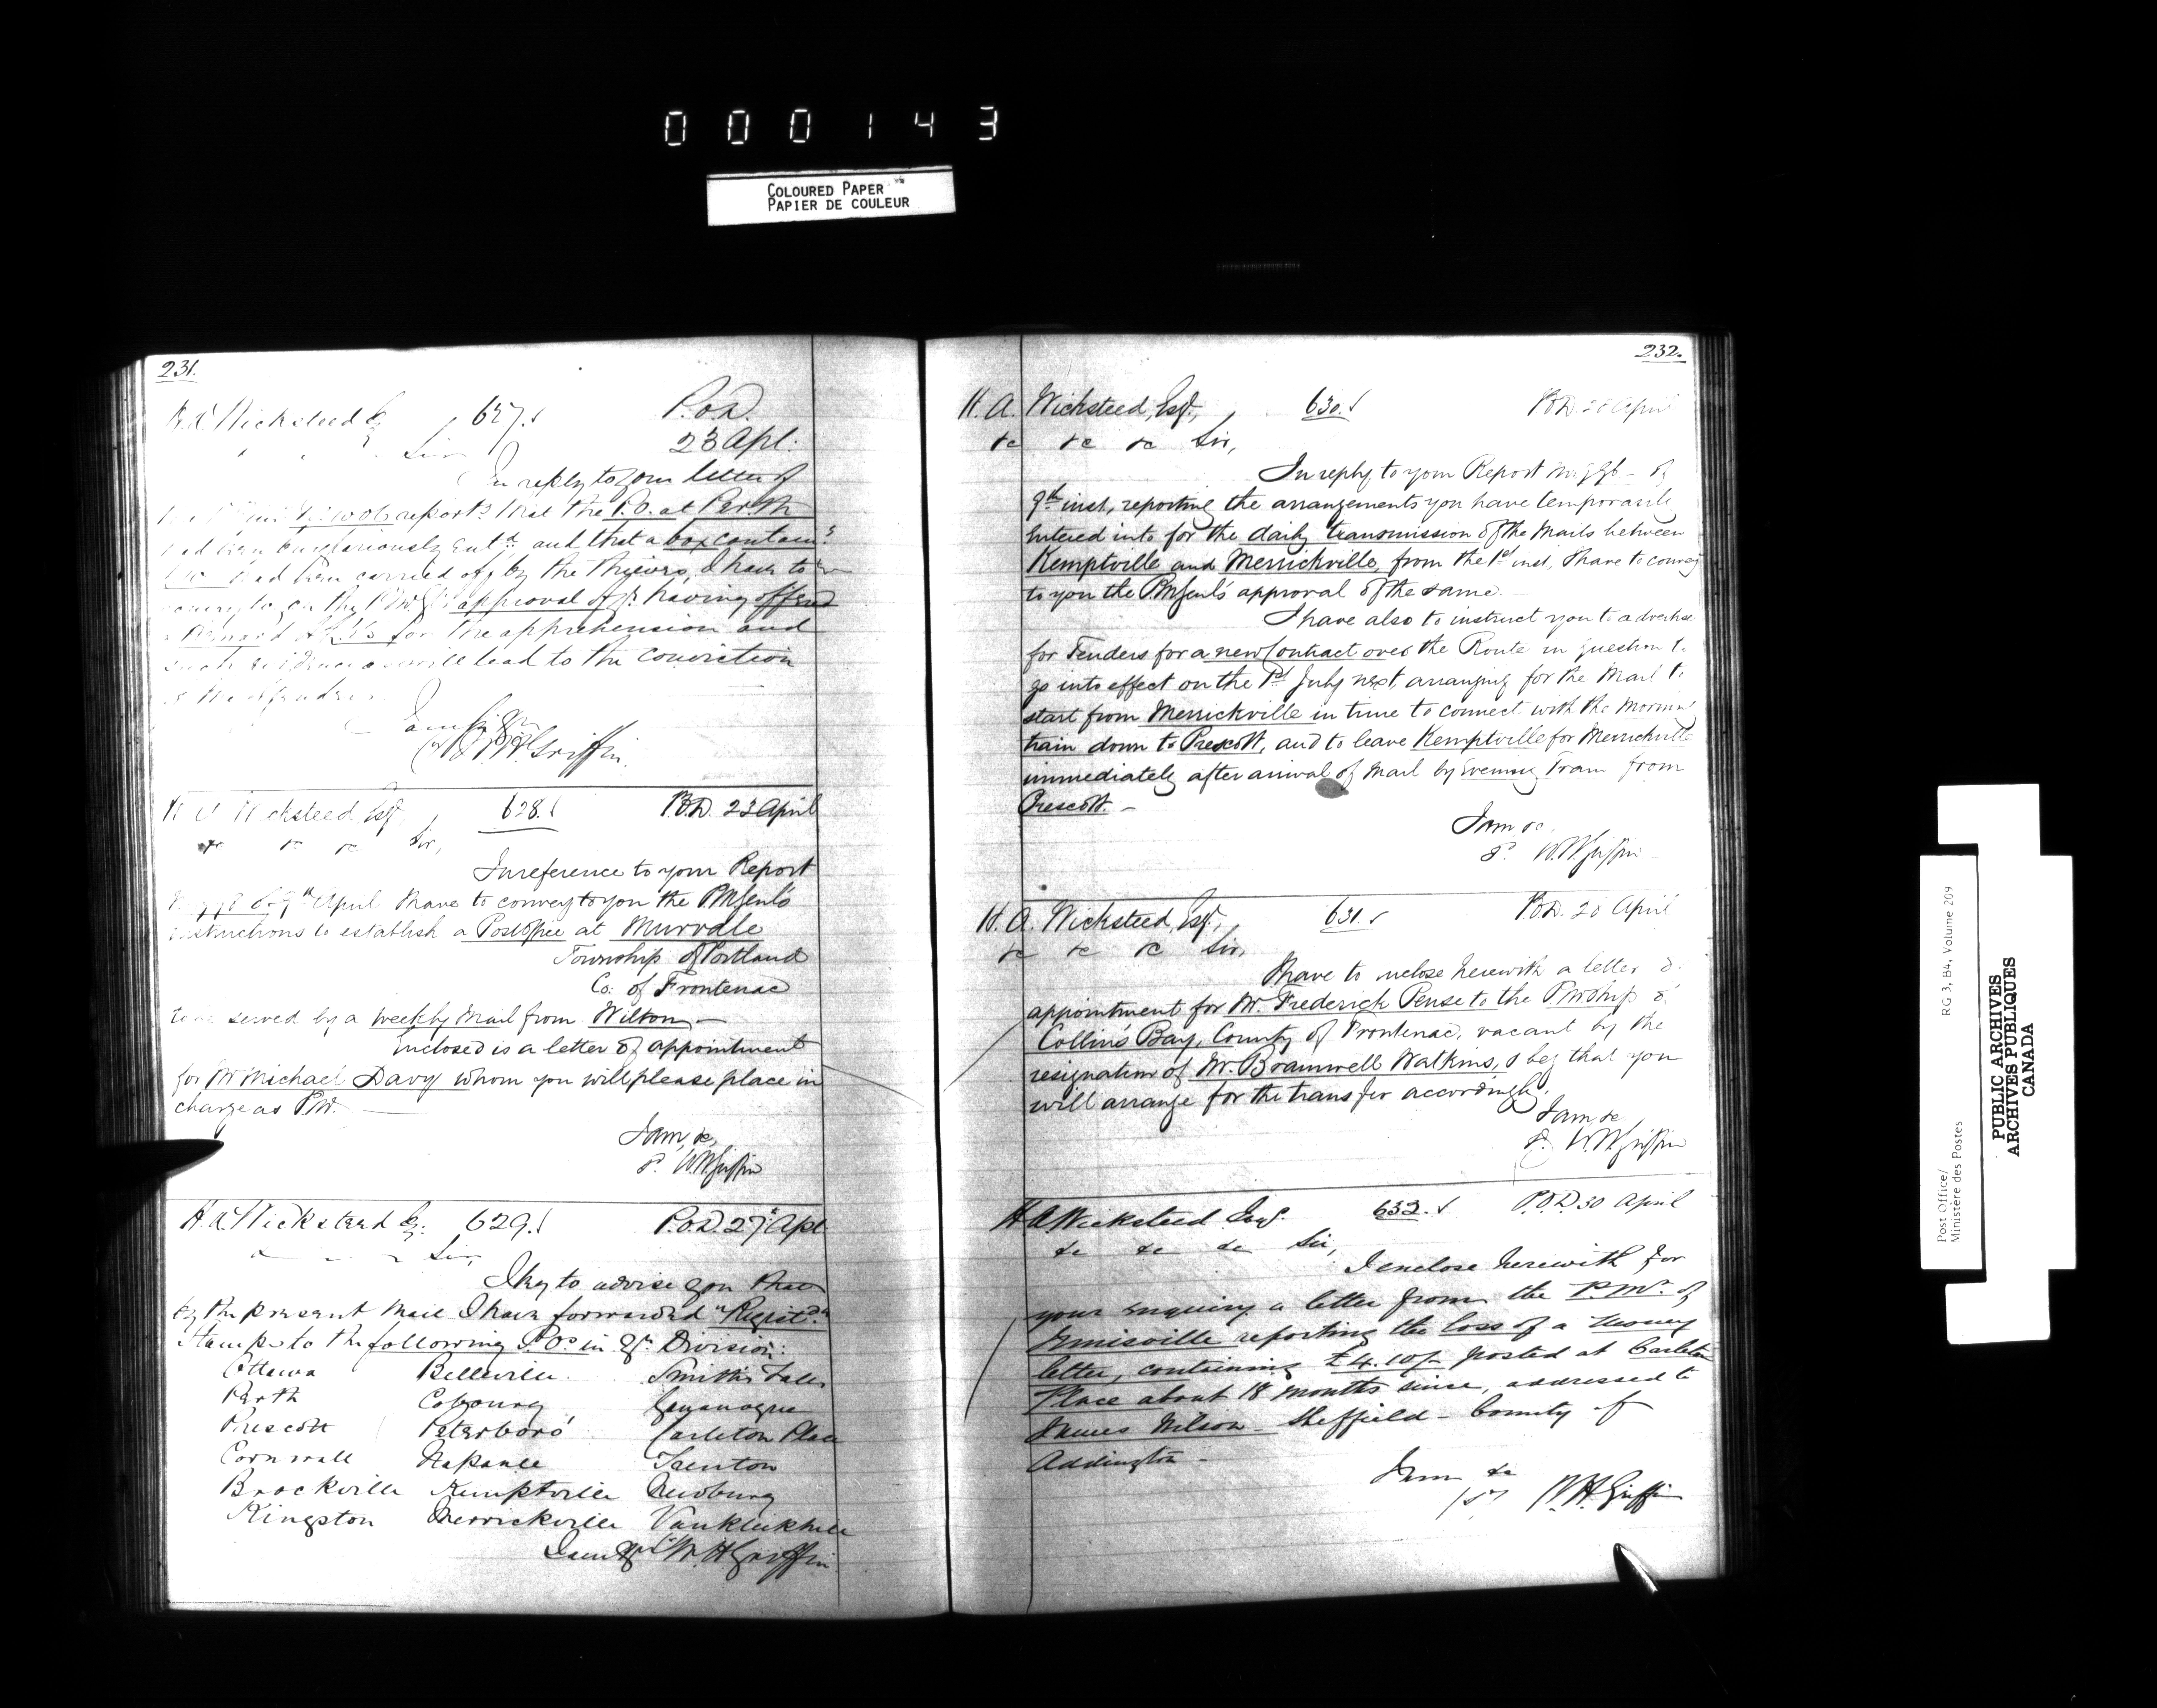 000143
COLOURED PAPER
PAPIER DE COULEUR
231.
H.A. Wicksteed Esq 627. P.O.D.
23 Apl.
Sir
In reply to your letter of
report.g that the P.O. at Perth
had been burglariously ent.d and that a box contain.g
had been carried off by the thieves, I have to
convey to you the P.M.G's approval of yr. having offered
a Reward of for the apprehension and
such evidence as will lead to the conviction
of the offenders
I am Sir &c
W.H. Griffin.
H A Wicksteed Esq. 628. P.O.D. 23 April
&c &c &c Sir,
In reference to your Report
of 9th April I have to convey to you the P.M.Genl's
instructions to establish a Post Office at Murvale
Township of Portland
Co: of Frontenac
to be served by a weekly Mail from Wilton —
Enclosed is a letter of appointment
for Mr Michael Davy whom you will please place in
charge as P.M. —
I am, &c,
W.H. Griffin
H.A. Wicksteed Eq. 629. P.O.D. 27 Apl
Sir,
I beg to advise you that
by the present Mail I have forwarded "Regist.d"
Stamps to the following P.Os in yr. Division:
Ottawa Belleville Smith's Falls
Perth Cobourg Gananoque
Prescott Peterboro' Carleton Place
Cornwall Napanee Trenton
Brockville Kemptville Newburg
Kingston Merrickville Vankleekhill
I am &c W.H. Griffin
232.
H.A. Wicksteed, Esq., 630. P.O.D. 28 April
&c &c &c Sir,
In reply to your Report No. of
9th inst, reporting the arrangements you have temporarily
entered into for the daily transmission of the Mails between
Kemptville and Merrickville, from the 1st inst, I have to convey
to you the P.M.Genl's approval of the same.
I have also to instruct you to advertise
for Tenders for a new Contract over the Route in question to
go into effect on the 1st July next, arranging for the Mail to
start from Merrickville in time to connect with the Morning
train down to Prescott, and to leave Kemptville for Merrickville
immediately after arrival of Mail by Evening Train from
Prescott. —
I am &c.
W.H. Griffin
H.A. Wicksteed, Esq., 631. P.O.D. 28 April
&c &c &c Sir,
I have to inclose herewith a letter of
appointment for Mr. Frederick Pense to the PMship of
Collins Bay, County of Frontenac, vacant by the
resignation of Mr. Bramwell Watkins, I beg that you
will arrange for the transfer accordingly.
I am &c
W.H. Griffin
H A Wicksteed Esq. 632. P.O.D. 30 April
&c &c &c Sir,
I enclose herewith for
your enquiry a letter from the P.Mr. of
Ennisville reporting the loss of a money
letter, containing £4.10/- posted at Carleton
Place about 18 months since, addressed to
James Wilson - Sheffield - County of
Addington -
I am &c
W.H. Griffin
Post Office/
Ministère des Postes
RG 3, B4, Volume 209
PUBLIC ARCHIVES
ARCHIVES PUBLIQUES
CANADA